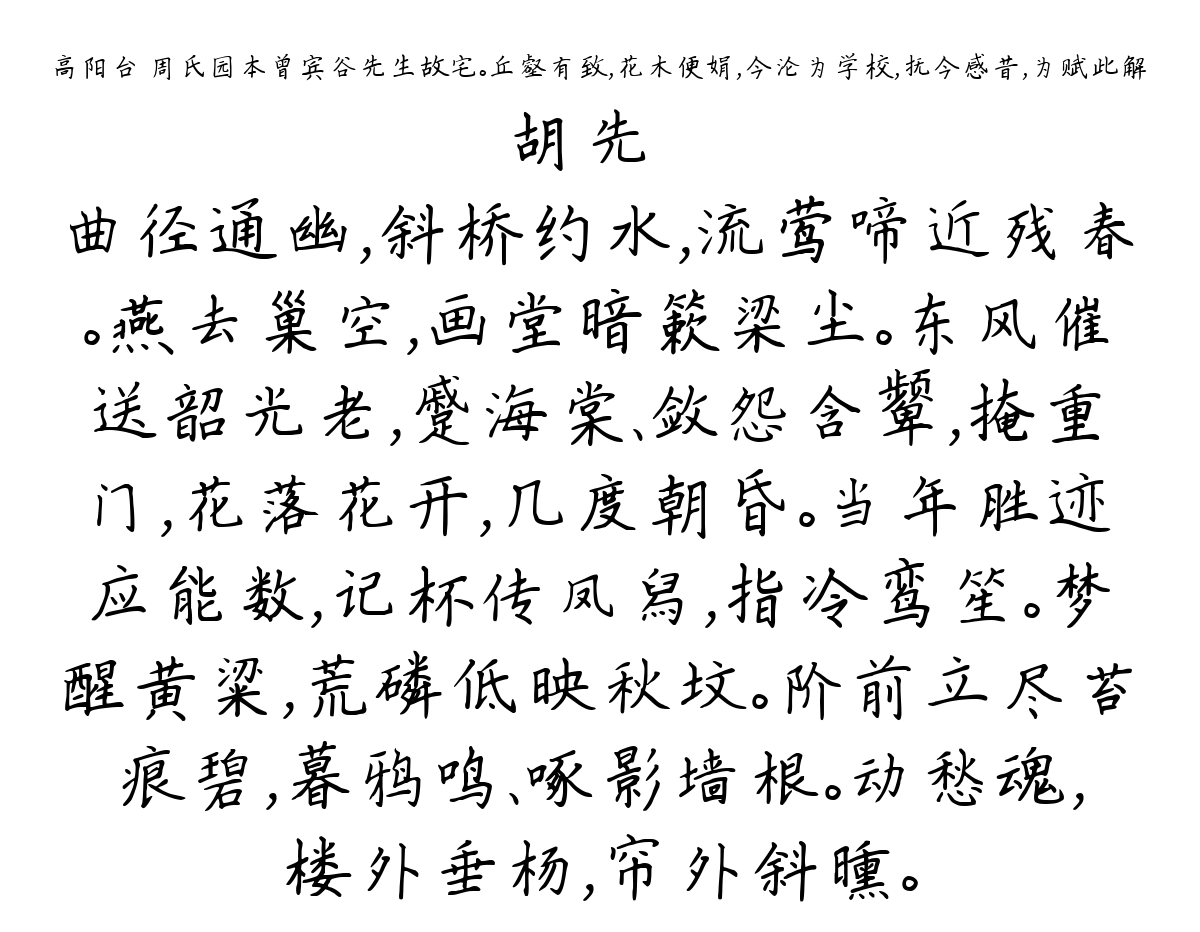 高阳台 周氏园本曾宾谷先生故宅。丘壑有致,花木便娟,今沦为学校,抚今感昔,为赋此解
胡先
曲径通幽,斜桥约水,流莺啼近残春
。燕去巢空,画堂暗簌梁尘。东风催
送韶光老,蹙海棠、敛怨含颦,掩重
门,花落花开,几度朝昏。当年胜迹
应能数,记杯传凤舄,指冷鸾笙。梦
醒黄粱,荒磷低映秋坟。阶前立尽苔
痕碧,暮鸦鸣、啄影墙根。动愁魂,
楼外垂杨,帘外斜曛。